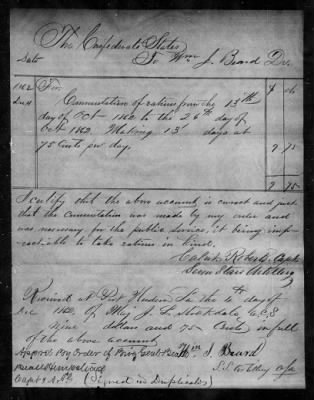 The Confederate States
Date To Wm J. Beard Dr.
1862 For
Dec 4 Commutation of rations from the 13th
day of Oct 1862 to the 26th day of
Oct 1862. Making 13 days at
75 Cents per day. 9 75
9 75
I certify that the above account is correct and just
that the commutation was made by my order and
was necessary for the public service, it being imprac-
cticable to take rations in kind.
Calvit Roberts, Capt
Seven Stars Artillery
Received at Port Hudson La the 4th day of
Dec 1862, of Maj J. L. Stockdale A.C.S
Nine dollars and 75 Cents in full
of the above account
Approved Pay Order of Brig Genl Beall Wm J. Beard
S.S. artillery
(Signed in Duplicates)